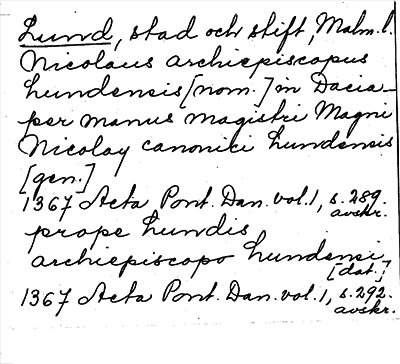 Lund, stad och stift, Malm. l.
Nicolaus archiepiscopus
Lundensis [nom.] in Dacia -
per manus magistri Magni
Nicolay canonici Lundensis
[gen.]
1367 Acta Pont. Dan. vol. 1, s. 289.
avskr.
prope Lundis
archiepiscopo Lundensi
[dat.]
1367 Acta Pont. Dan. vol. 1, s. 292.
avskr.